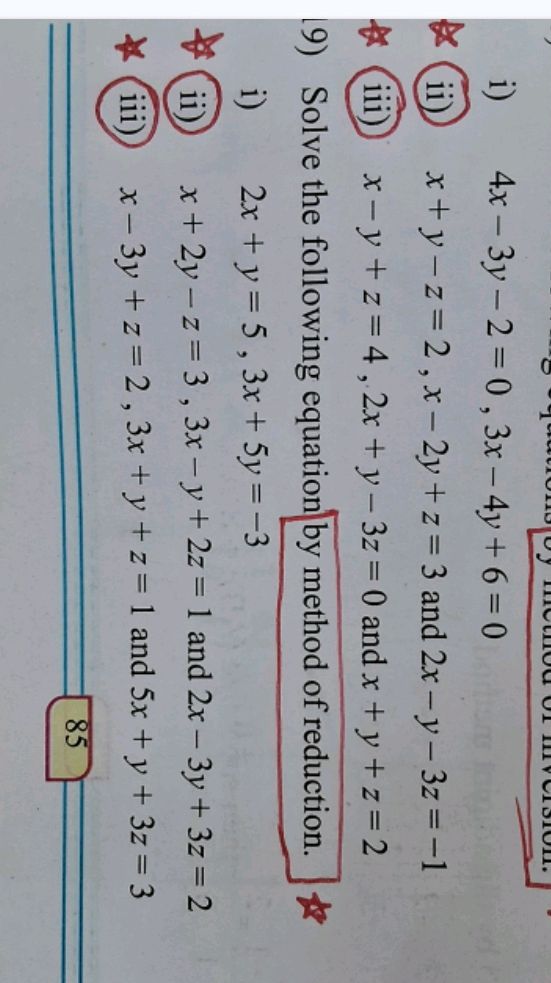 i) 4x – 3y – 2 = 0 , 3x – 4y + 6 = 0
ii) x + y – z = 2 , x – 2y + z = 3 and 2x – y – 3z = –1
iii) x – y + z = 4 , 2x + y – 3z = 0 and x + y + z = 2
19) Solve the following equation by method of reduction.
i) 2x + y = 5 , 3x + 5y = –3
ii) x + 2y – z = 3 , 3x – y + 2z = 1 and 2x – 3y + 3z = 2
iii) x – 3y + z = 2 , 3x + y + z = 1 and 5x + y + 3z = 3
85